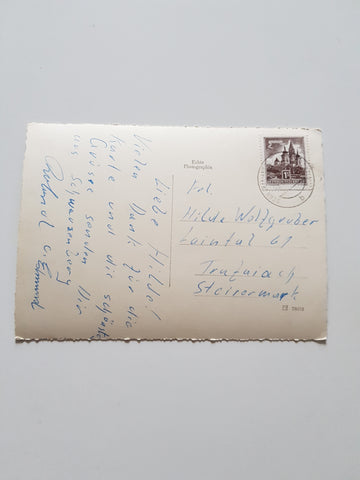 Liebe Hilde!
Vielen Dank für die
Karte und die schönsten
Grüsse senden Dir
aus Schwarzenberg
Echte
Photographie
Frl.
Hilde Wolfgruber
Laintal 61
Trofaiach
Steiermark